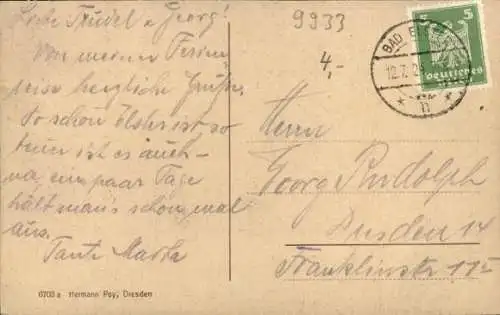 Liebe Trudel u. Georg!
Von meiner Ferien-
reise herzliche Grüße.
So schön Elster ist so
teuer ist es auch –
na, ein paar Tage
hält man's schon mal
aus.
Tante Martha
6700 a Hermann Poy, Dresden
9933
4,-
BAD
12.7.2
h
5
Deutsches
Herrn
Georg Rudolph
Dresden 14
Franklinstr. 11